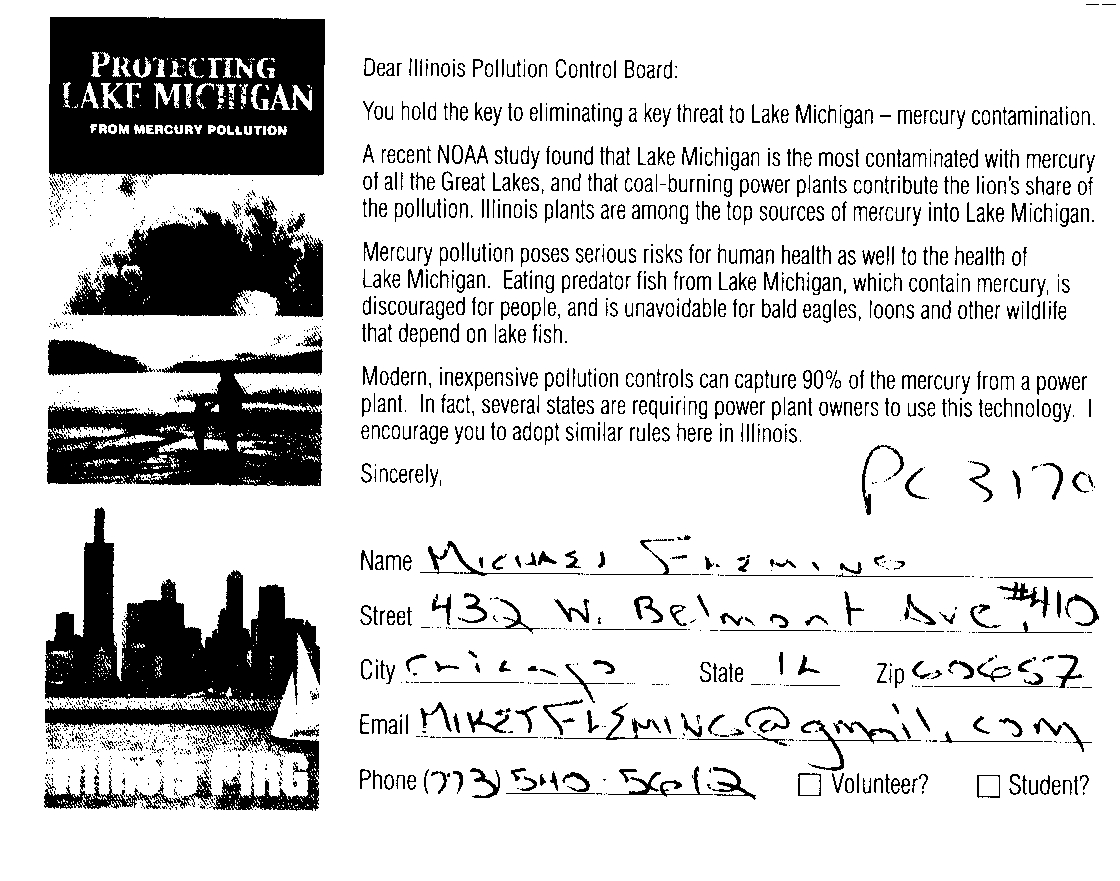 PROTECTING
LAKE MICHIGAN
FROM MERCURY POLLUTION
ILLINOIS PIRG
Dear Illinois Pollution Control Board:
You hold the key to eliminating a key threat to Lake Michigan – mercury contamination.
A recent NOAA study found that Lake Michigan is the most contaminated with mercury
of all the Great Lakes, and that coal-burning power plants contribute the lion's share of
the pollution. Illinois plants are among the top sources of mercury into Lake Michigan.
Mercury pollution poses serious risks for human health as well to the health of
Lake Michigan. Eating predator fish from Lake Michigan, which contain mercury, is
discouraged for people, and is unavoidable for bald eagles, loons and other wildlife
that depend on lake fish.
Modern, inexpensive pollution controls can capture 90% of the mercury from a power
plant. In fact, several states are requiring power plant owners to use this technology. I
encourage you to adopt similar rules here in Illinois.
Sincerely,
PC 3170
Name MICHAEL FLEMING
Street 432 W. Belmont Ave, #410
City Chicago State IL Zip 60657
Email MIKETFLEMING@gmail.com
Phone (773) 540-5612 Volunteer? Student?